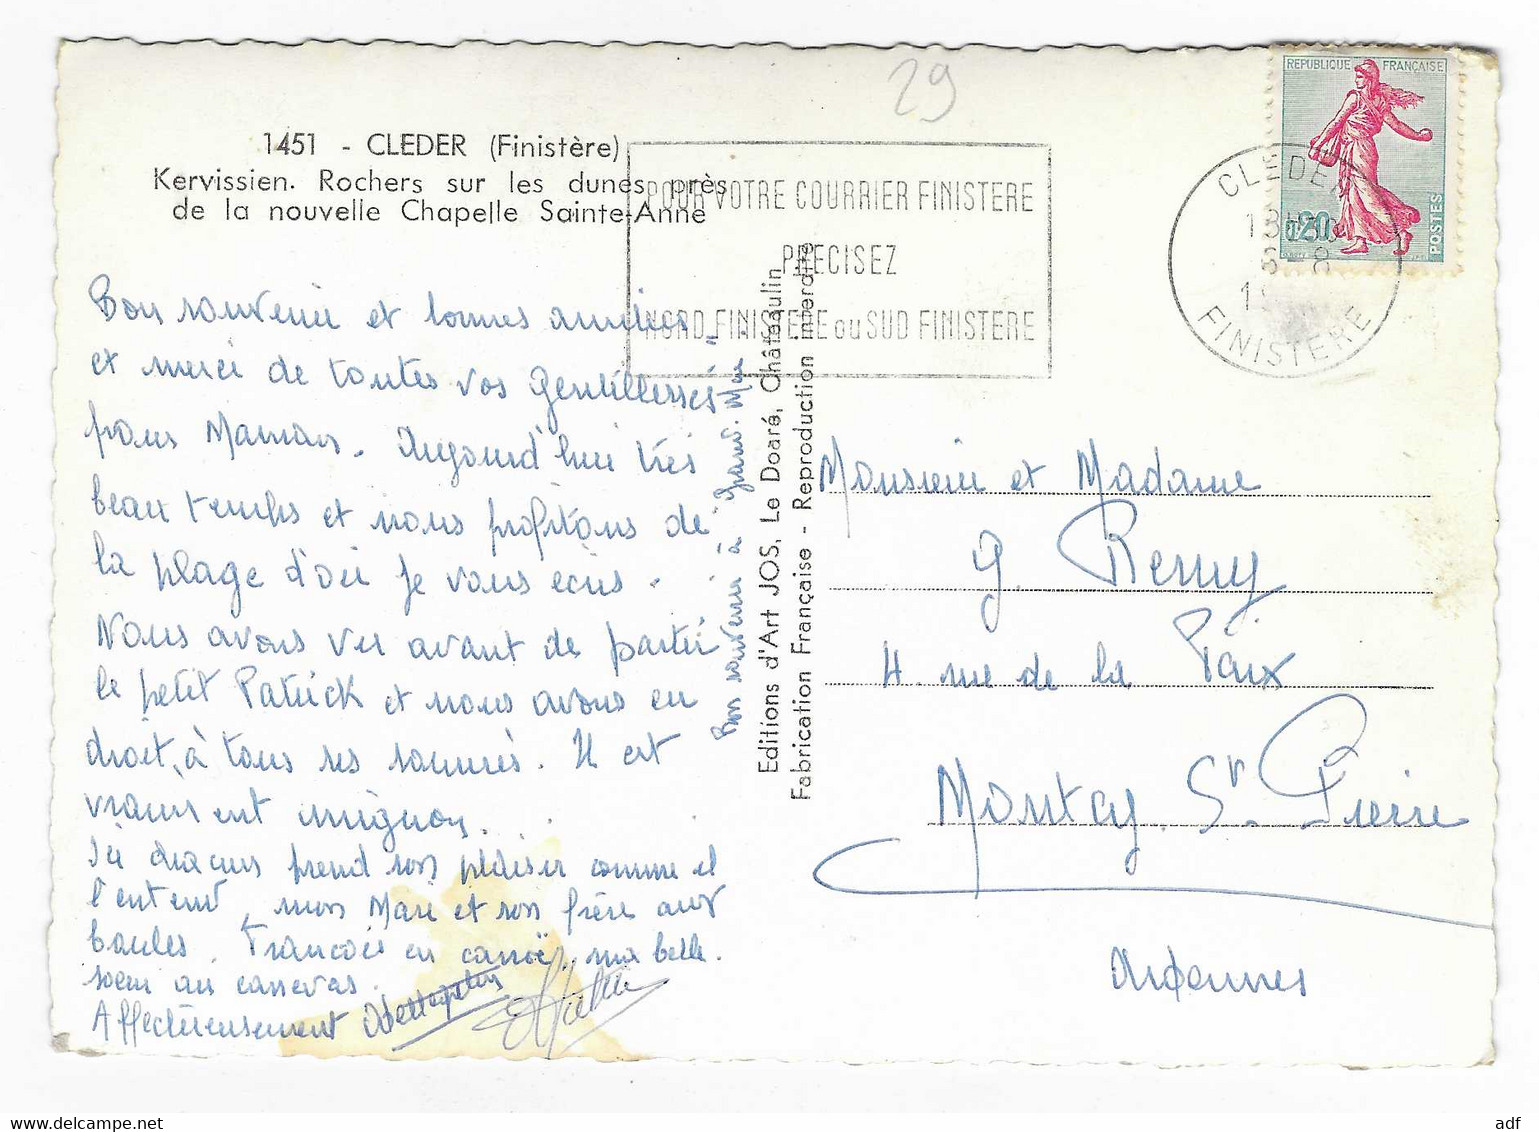 29
1451 - CLEDER (Finistère)
Kervissien. Rochers sur les dunes près
de la nouvelle Chapelle Sainte-Anne
POUR VOTRE COURRIER FINISTERE
PRECISEZ
NORD FINISTERE ou SUD FINISTERE
REPUBLIQUE FRANÇAISE
0,20
POSTES
CLEDER
18H
8-8
19
FINISTERE
Bon souvenir et bonnes amitiés
et merci de toutes vos gentillesses
pour Maman. Aujourd'hui très
beau temps et nous profitons de
la plage d'où je vous écris.
Nous avons vu avant de partir
le petit Patrick et nous avons eu
droit, à tous ses sourires. Il est
vraiment mignon.
Ici chacun prend son plaisir comme il
l'entend, mon Mari et son frère aux
boules. Francoise en canoë, ma belle.
soeur au canevas.
Affectueusement
Bon souvenir à Grand-Mère
Editions d'Art JOS, Le Doaré, Châteaulin
Fabrication Française - Reproduction interdite
Monsieur et Madame
G. Remy
4 rue de la Paix
Montcy St. Pierre
Ardennes
adf